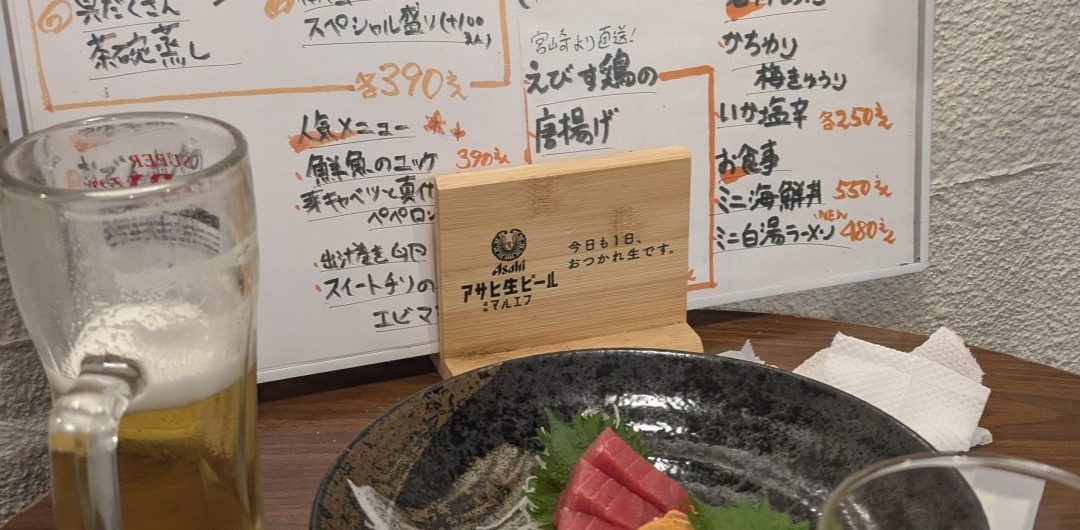 具だくさん
茶碗蒸し
スペシャル盛り(+100
各390えん
人気メニュー
鮮魚のユッケ 390えん
ペペロン
出汁巻き
スイートチリの
エビマ
宮崎より直送!
えびす鶏の
唐揚げ
かちわり
梅きゅうり
いか塩辛 各250えん
お食事
ミニ海鮮丼 550えん
NEW
ミニ白湯ラーメン 480えん
Asahi
アサヒ生ビール
通称
マルエフ
今日も1日、
おつかれ生です。
SUPER